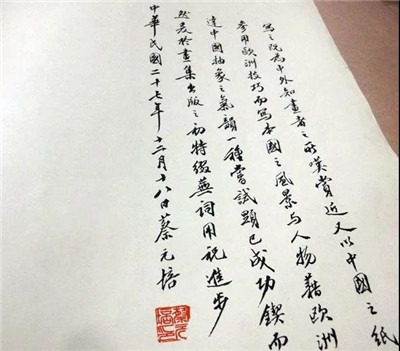 寫之既為中外知畫者之所嘆賞近又以中國之紙
參用歐洲技巧而寫本國之風景與人物藉歐洲
達中國抽象之氣韻一種嘗試顯已成功鍥而
然爰於畫集出版之初特綴蕪詞用祝進步
中華民國二十七年十二月十八日蔡元培